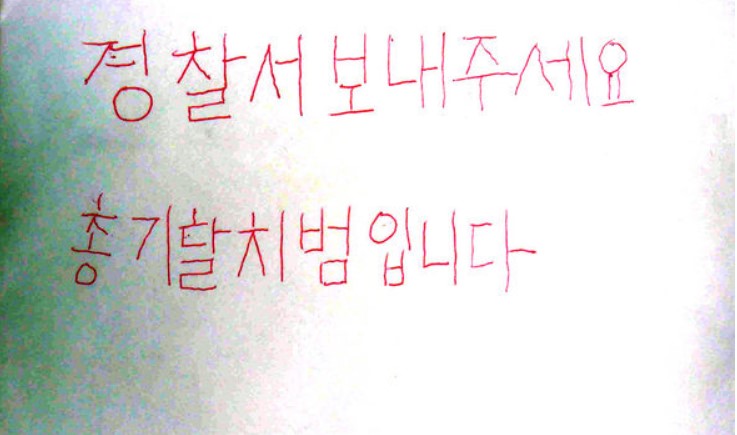 경찰서보내주세요
총기탈치범입니다